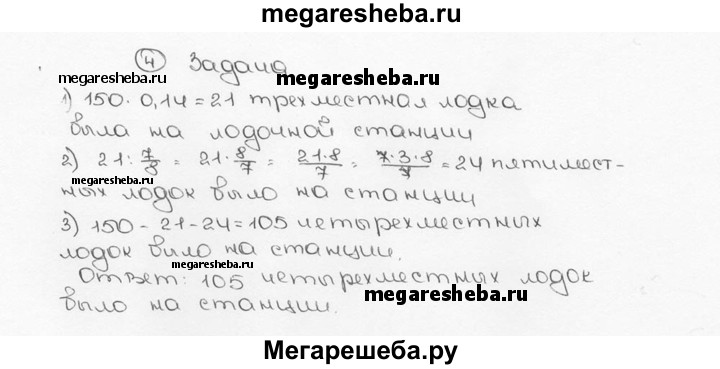 megaresheba.ru
4 Задача
megaresheba.ru
1) 150 · 0,14 = 21 трехместная лодка
была на лодочной станции
2) 21 : 7/8 = 21 · 8/7 = 21·8/7 = 7·3·8/7 = 24 пятимест-
megaresheba.ru
ных лодок было на станции
3) 150 - 21 - 24 = 105 четырехместных
лодок было на станции.
megaresheba.ru
Ответ: 105 четырехместных лодок
megaresheba.ru
было на станции.
Мегарешеба.ру